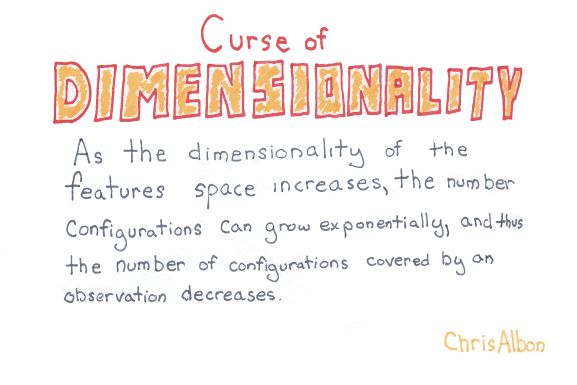 Curse of
DIMENSIONALITY
As the dimensionality of the
features space increases, the number
configurations can grow exponentially, and thus
the number of configurations covered by an
observation decreases.
ChrisAlbon